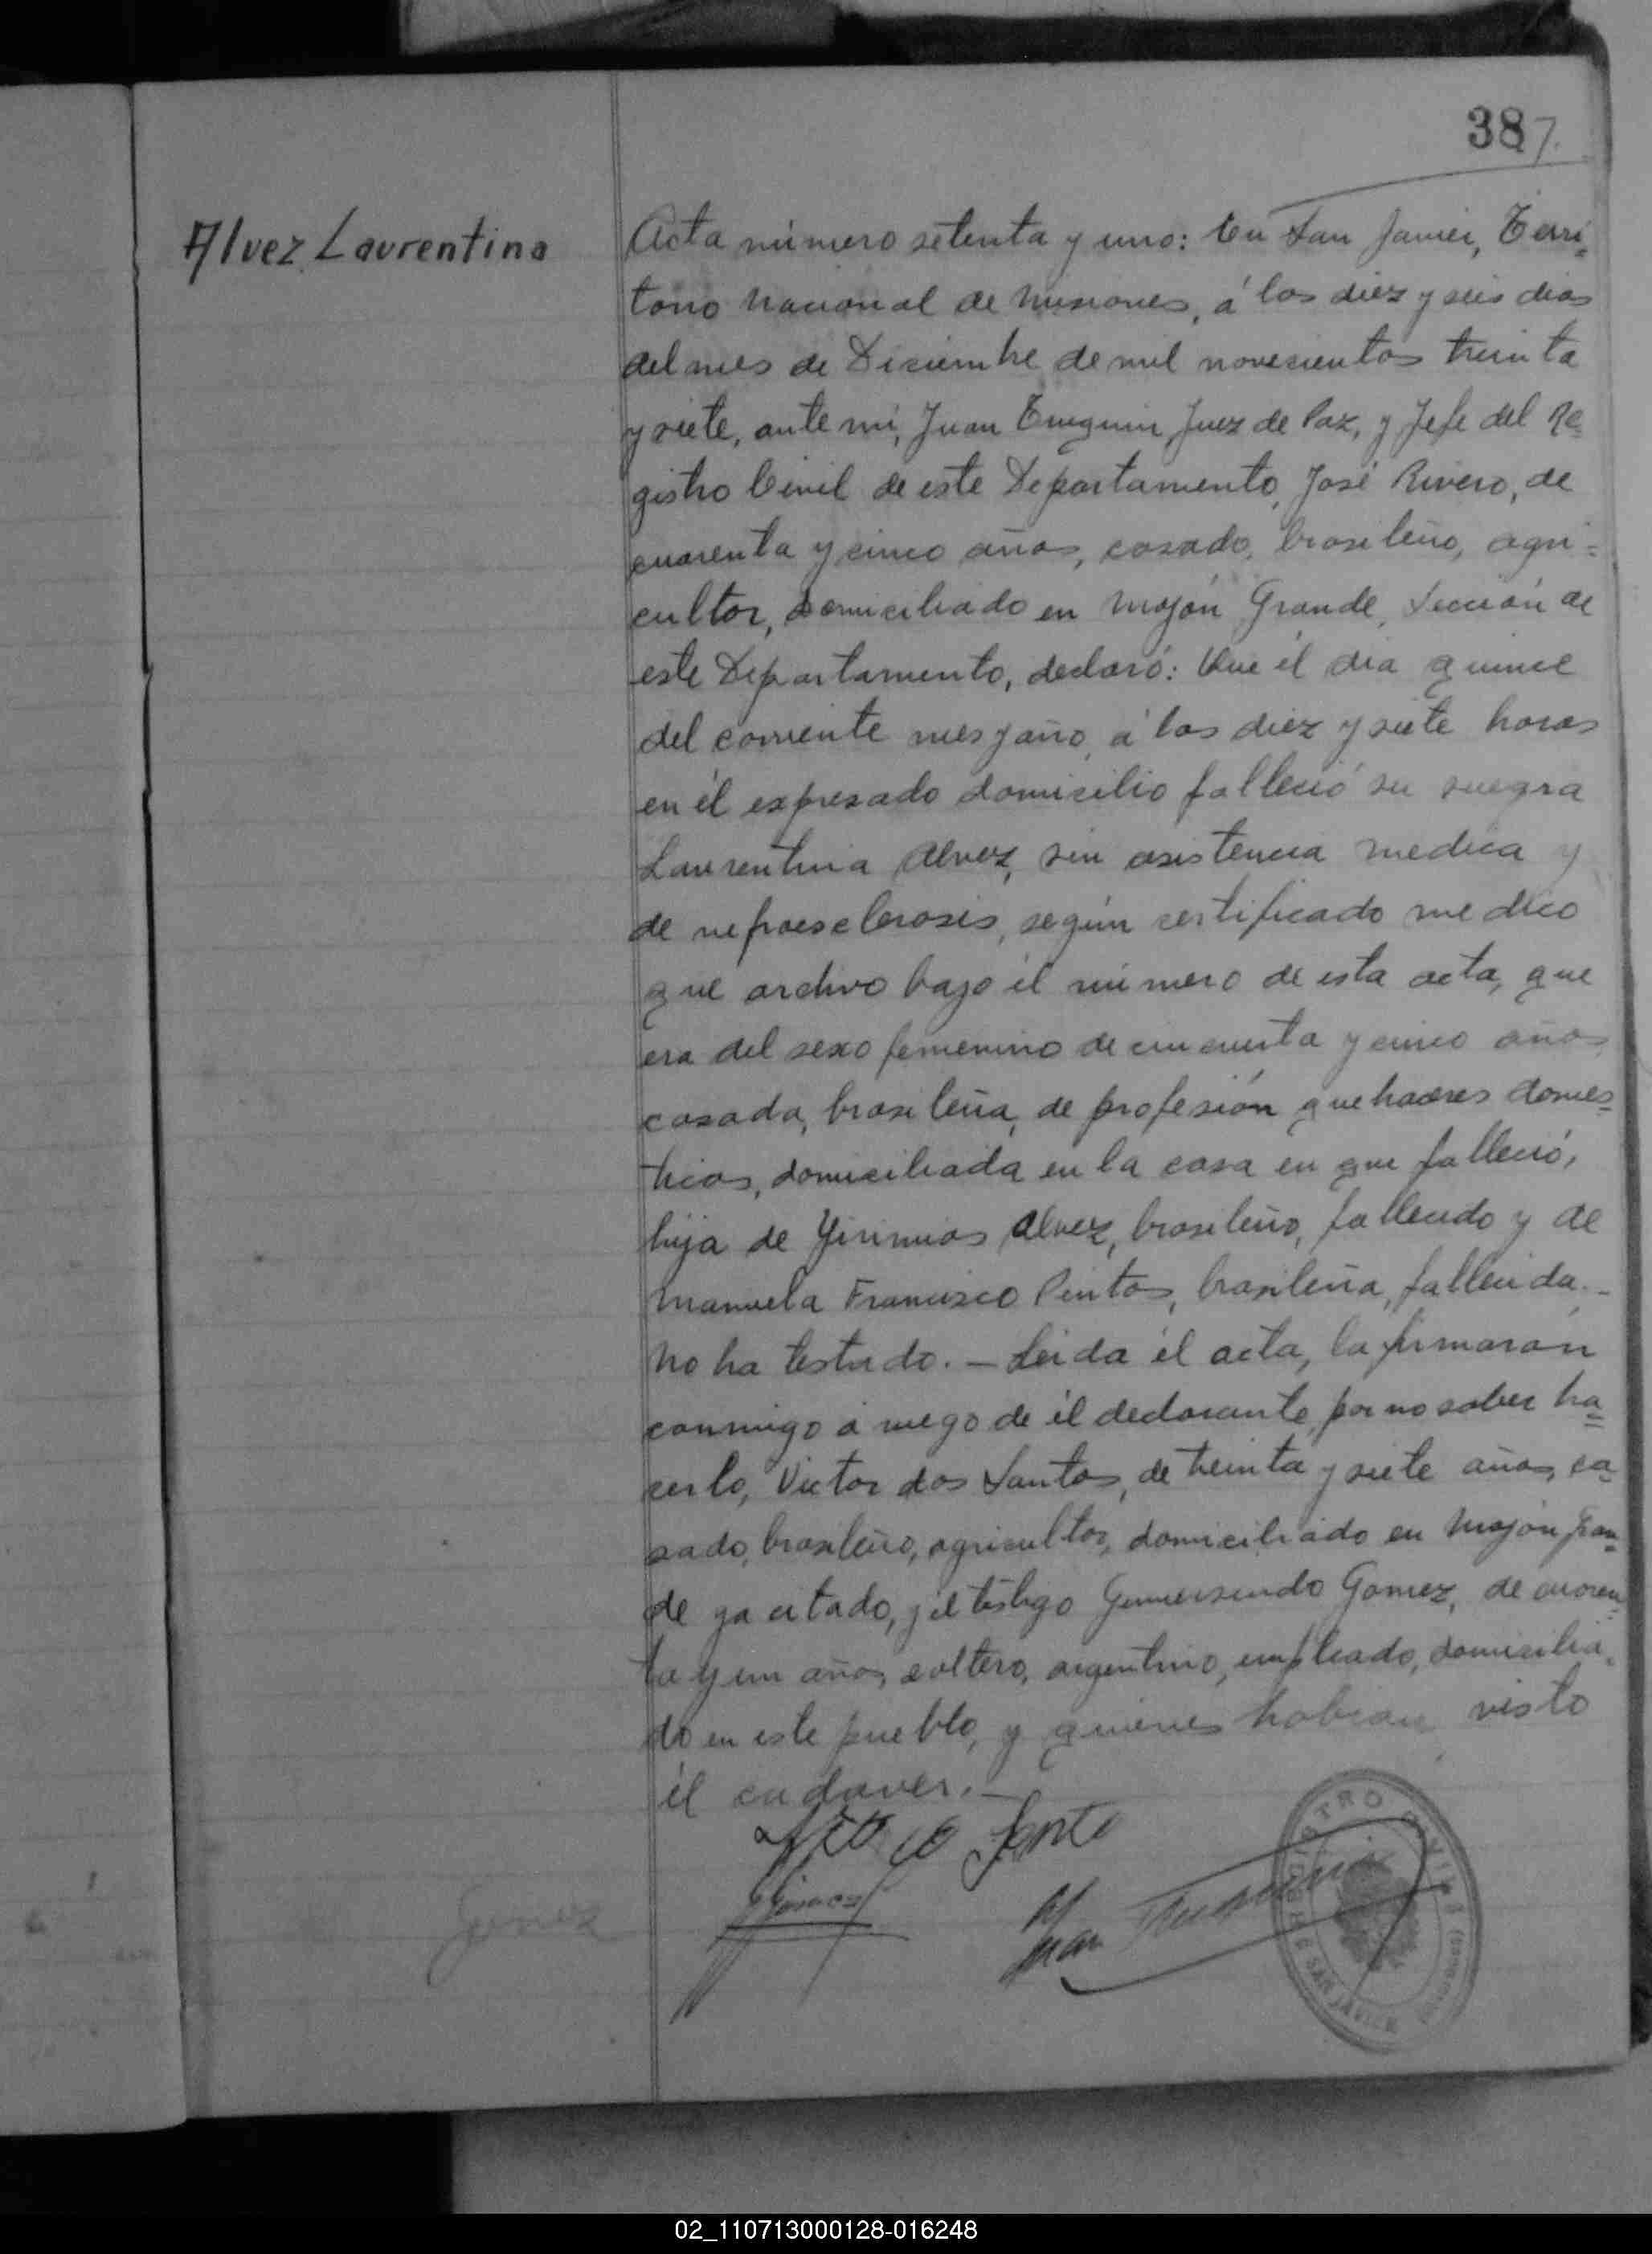 387.
Alvez Laurentina
Acta número setenta y uno: En San Javier, Terri=
torio Nacional de Misiones, á los diez y seis dias
del mes de Diciembre de mil novecientos treinta
y siete, ante mi, Juan Juez de Paz, y Jefe del Re=
gistro Civil de este Departamento, José Rivero, de
cuarenta y cinco años, casado, brasileño, agri=
cultor, domiciliado en Mojón Grande, Sección de
este Departamento, declaró: Que él dia quince
del corriente mes y año, á las diez y siete horas
en él expresado domicilio falleció su suegra
Laurentina Alvez, sin asistencia medica y
de nefroesclerosis, según certificado medico
que archivo bajo él número de esta acta, que
era del sexo femenino de cincuenta y cinco años
casada, brasileña, de profesión quehaceres domes=
ticos, domiciliada en la casa en que falleció,
hija de Alvez, brasileño, fallecido y de
Manuela Francisco Pintos, brasileña, fallecida.-
No ha testado.- Leida él acta, la firmaron
conmigo á ruego de él declarante, por no saber ha=
cerlo, Victor dos Santos, de treinta y siete años, ca=
sado, brasileño, agricultor, domiciliado en Mojón Gran=
de ya citado, y él testigo Gumersindo Gomez, de cuaren=
ta y un años, soltero, argentino, empleado, domicilia=
do en este pueblo, y quienes habian visto
él cadaver.-
Gomez
Juan
REGISTRO CIVIL
SAN JAVIER
02_110713000128-016248